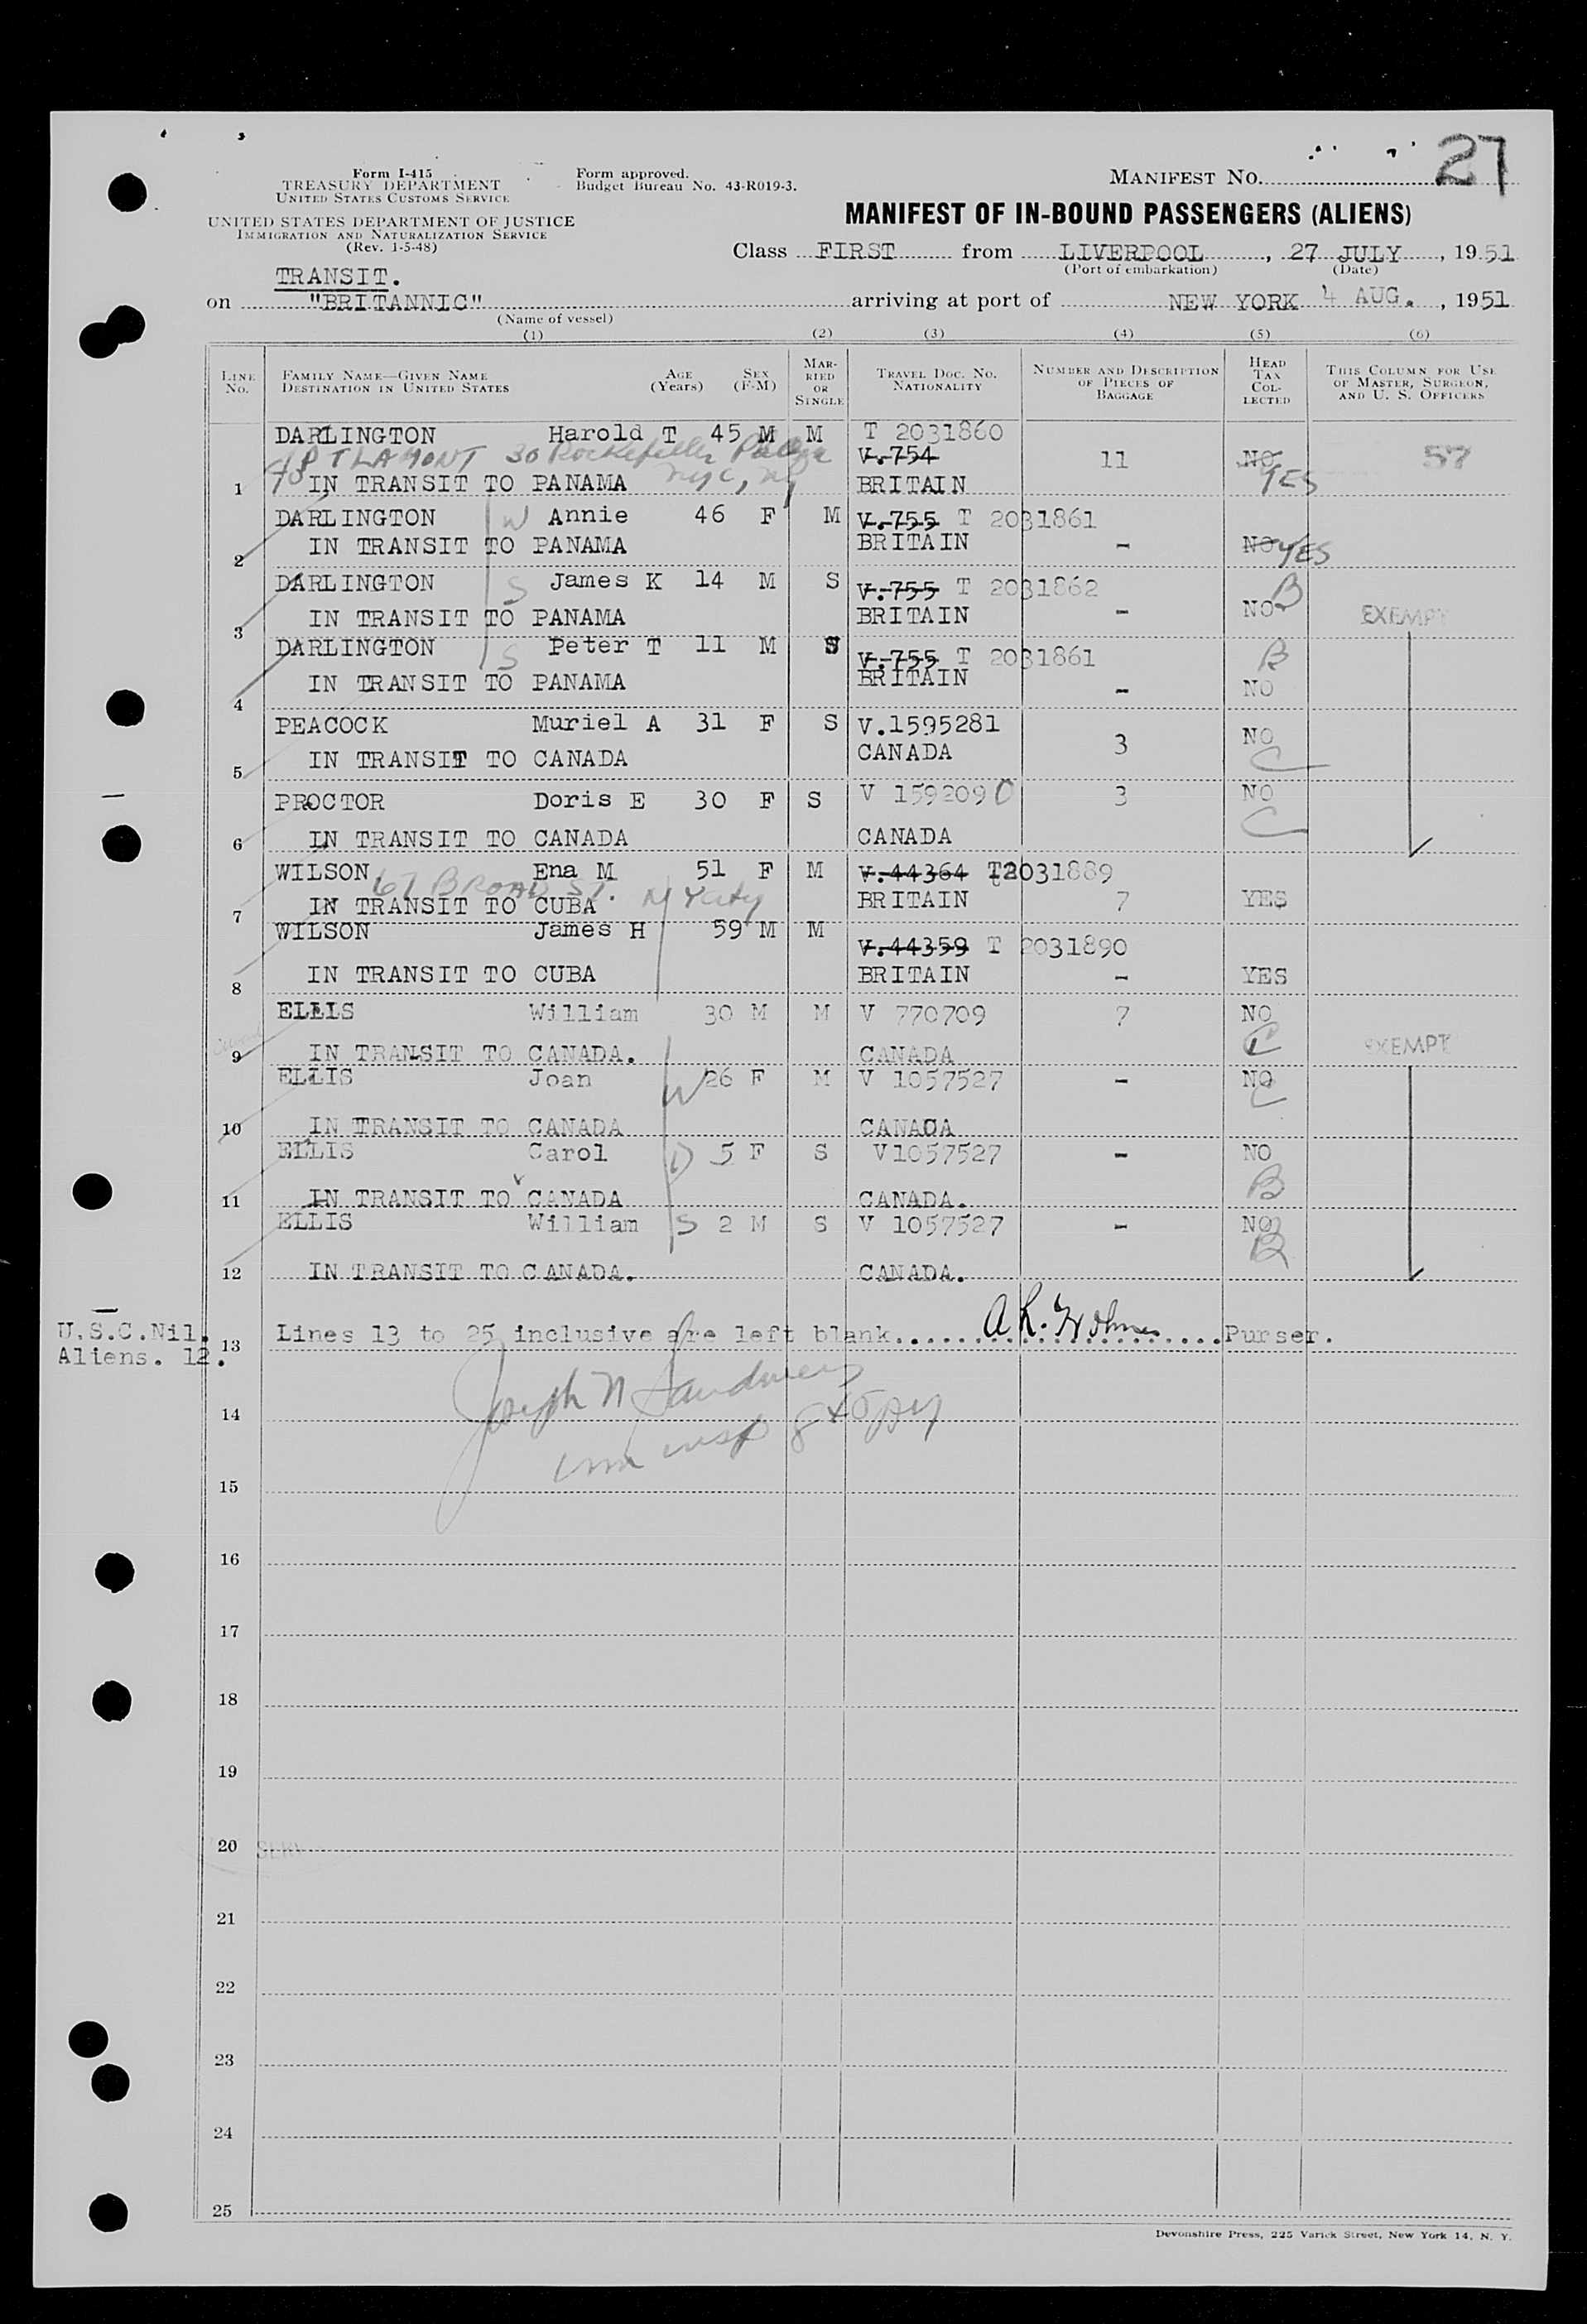 27
Form I-415
TREASURY DEPARTMENT
UNITED STATES CUSTOMS SERVICE
Form approved.
Budget Bureau No. 43-R019-3.
MANIFEST NO.
UNITED STATES DEPARTMENT OF JUSTICE
IMMIGRATION AND NATURALIZATION SERVICE
(Rev. 1-5-48)
MANIFEST OF IN-BOUND PASSENGERS (ALIENS)
Class FIRST from LIVERPOOL, 27 JULY, 1951
(Port of embarkation) (Date)
TRANSIT.
on "BRITANNIC" arriving at port of NEW YORK 4 AUG., 1951
(Name of vessel)
(1) (2) (3) (4) (5) (6)
LINE No. FAMILY NAME—GIVEN NAME DESTINATION IN UNITED STATES AGE (Years) SEX (F-M) MARRIED OR SINGLE TRAVEL DOC. NO. NATIONALITY NUMBER AND DESCRIPTION OF PIECES OF BAGGAGE HEAD TAX COLLECTED THIS COLUMN FOR USE OF MASTER, SURGEON, AND U. S. OFFICERS
DARLINGTON Harold T 45 M M T 2031860
30 Rockefeller V.754 11 NO 57
1 IN TRANSIT TO PANAMA NYC, NY BRITAIN YES
DARLINGTON W Annie 46 F M V.755 T 2031861
2 IN TRANSIT TO PANAMA BRITAIN - NO YES
DARLINGTON S James K 14 M S V.755 T 2031862 B
3 IN TRANSIT TO PANAMA BRITAIN - NO EXEMPT
DARLINGTON S Peter T 11 M S V.755 T 2031861 B
4 IN TRANSIT TO PANAMA BRITAIN - NO
PEACOCK Muriel A 31 F S V.1595281 NO
5 IN TRANSIT TO CANADA CANADA 3 C
PROCTOR Doris E 30 F S V 1592090 3 NO
6 IN TRANSIT TO CANADA CANADA C
WILSON Ena M 51 F M V.44364 T2031889
67 BROAD ST. N Y City
7 IN TRANSIT TO CUBA BRITAIN 7 YES
WILSON James H 59 M M V.44359 T 2031890
8 IN TRANSIT TO CUBA BRITAIN - YES
ELLIS William 30 M M V 770709 7 NO
9 IN TRANSIT TO CANADA. CANADA C EXEMPT
ELLIS Joan W 26 F M V 1057527 - NO
10 IN TRANSIT TO CANADA CANADA C
ELLIS Carol D 5 F S V1057527 - NO
11 IN TRANSIT TO CANADA CANADA. B
ELLIS William S 2 M S V 1057527 - NO
12 IN TRANSIT TO CANADA. CANADA. B
U.S.C.Nil.
Aliens. 12.
13 Lines 13 to 25 inclusive are left blank. Purser.
14
15
16
17
18
19
20
21
22
23
24
25
Devonshire Press, 225 Varick Street, New York 14, N. Y.